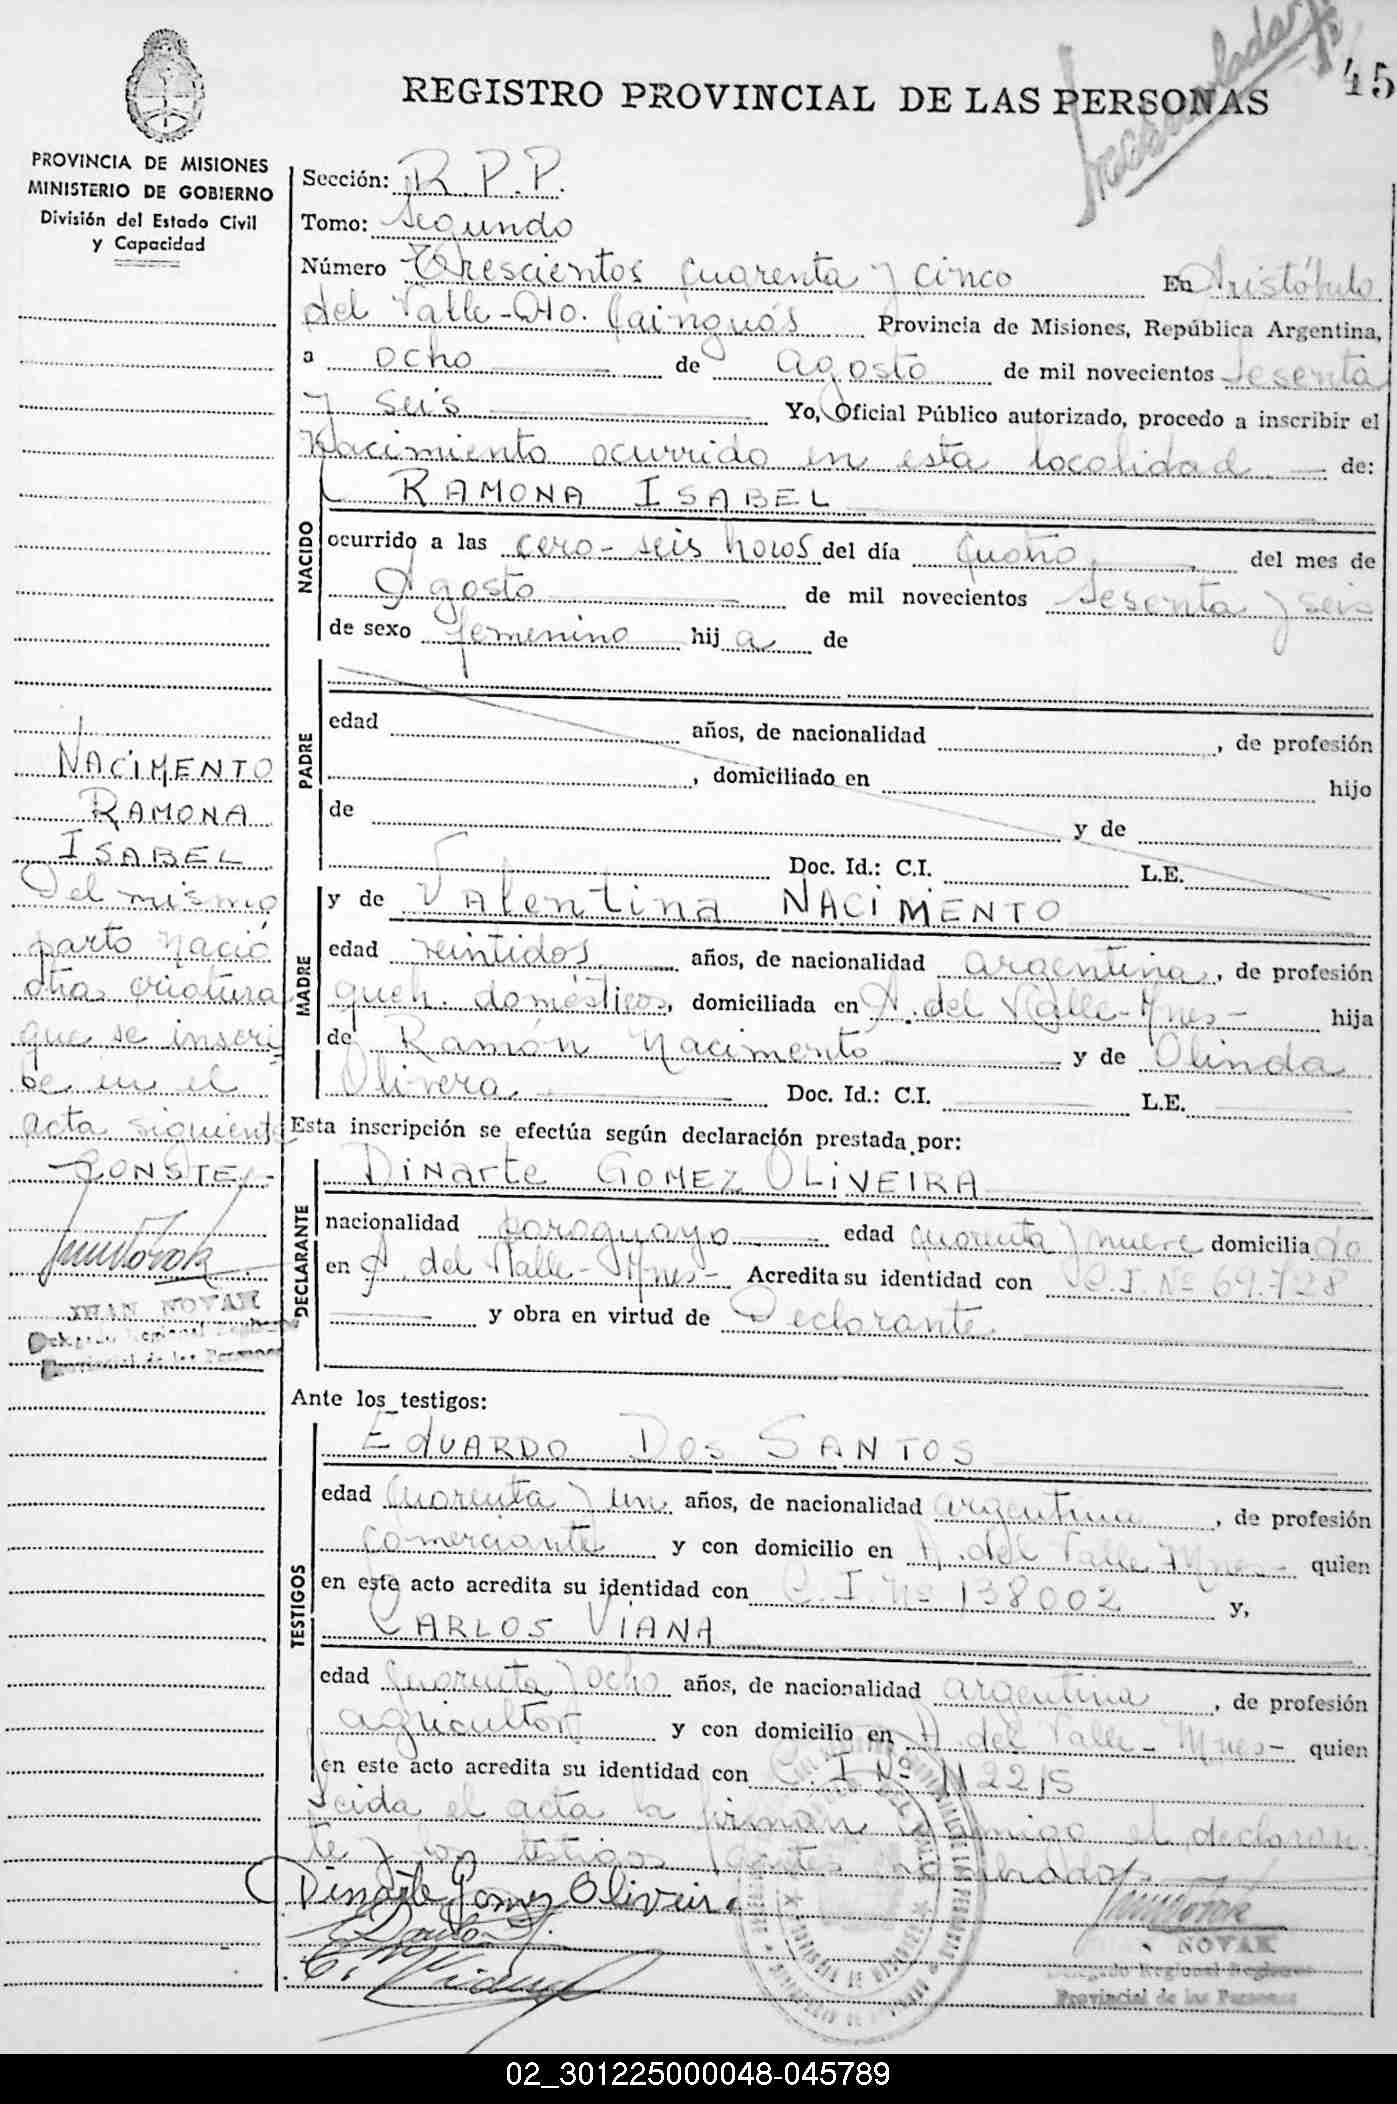 45
REGISTRO PROVINCIAL DE LAS PERSONAS
PROVINCIA DE MISIONES
MINISTERIO DE GOBIERNO
División del Estado Civil
y Capacidad
Sección: R.P.P.
Tomo: Segundo
Número Trescientos cuarenta y cinco En Aristóbulo
del Valle-Dto. Cainguás Provincia de Misiones, República Argentina,
a ocho de agosto de mil novecientos sesenta
y seis Yo, Oficial Público autorizado, procedo a inscribir el
Nacimiento ocurrido en esta localidad de:
NACIDO
RAMONA ISABEL
ocurrido a las cero-seis horas del día cuatro del mes de
Agosto de mil novecientos sesenta y seis
de sexo femenino hij a de
PADRE
edad años, de nacionalidad , de profesión
, domiciliado en hijo
de y de
Doc. Id.: C.I. L.E.
MADRE
y de Valentina NACIMENTO
edad veintidos años, de nacionalidad argentina, de profesión
queh. domésticos, domiciliada en A. del Valle-Mnes- hija
de Ramón Nacimento y de Olinda
Olivera Doc. Id.: C.I. L.E.
Esta inscripción se efectúa según declaración prestada por:
DECLARANTE
Dinarte GOMEZ OLIVEIRA
nacionalidad paraguayo edad cuarenta y nueve domicilia do
en A. del Valle-Mnes- Acredita su identidad con C.I. Nº 69.728
y obra en virtud de Declarante.
Ante los testigos:
TESTIGOS
EDUARDO DOS SANTOS
edad cuarenta y un años, de nacionalidad argentina, de profesión
comerciante y con domicilio en A. del Valle Mnes- quien
en este acto acredita su identidad con C.I. Nº 138002 y,
CARLOS VIANA
edad cuarenta y ocho años, de nacionalidad argentina, de profesión
agricultor y con domicilio en A. del Valle-Mnes- quien
en este acto acredita su identidad con C.I Nº 112215
Leida el acta la firman conmigo el declaran
te y los testigos
Dinarte Gomez Oliveira
NOVAK
Delegado Regional Registro
Provincial de las Personas
NACIMENTO
RAMONA
ISABEL
Del mismo
parto nació
otra criatura
que se inscri
be en el
acta siguiente
CONSTE-
JUAN NOVAK
Delegado Regional Registro
Provincial de las Personas
02_301225000048-045789